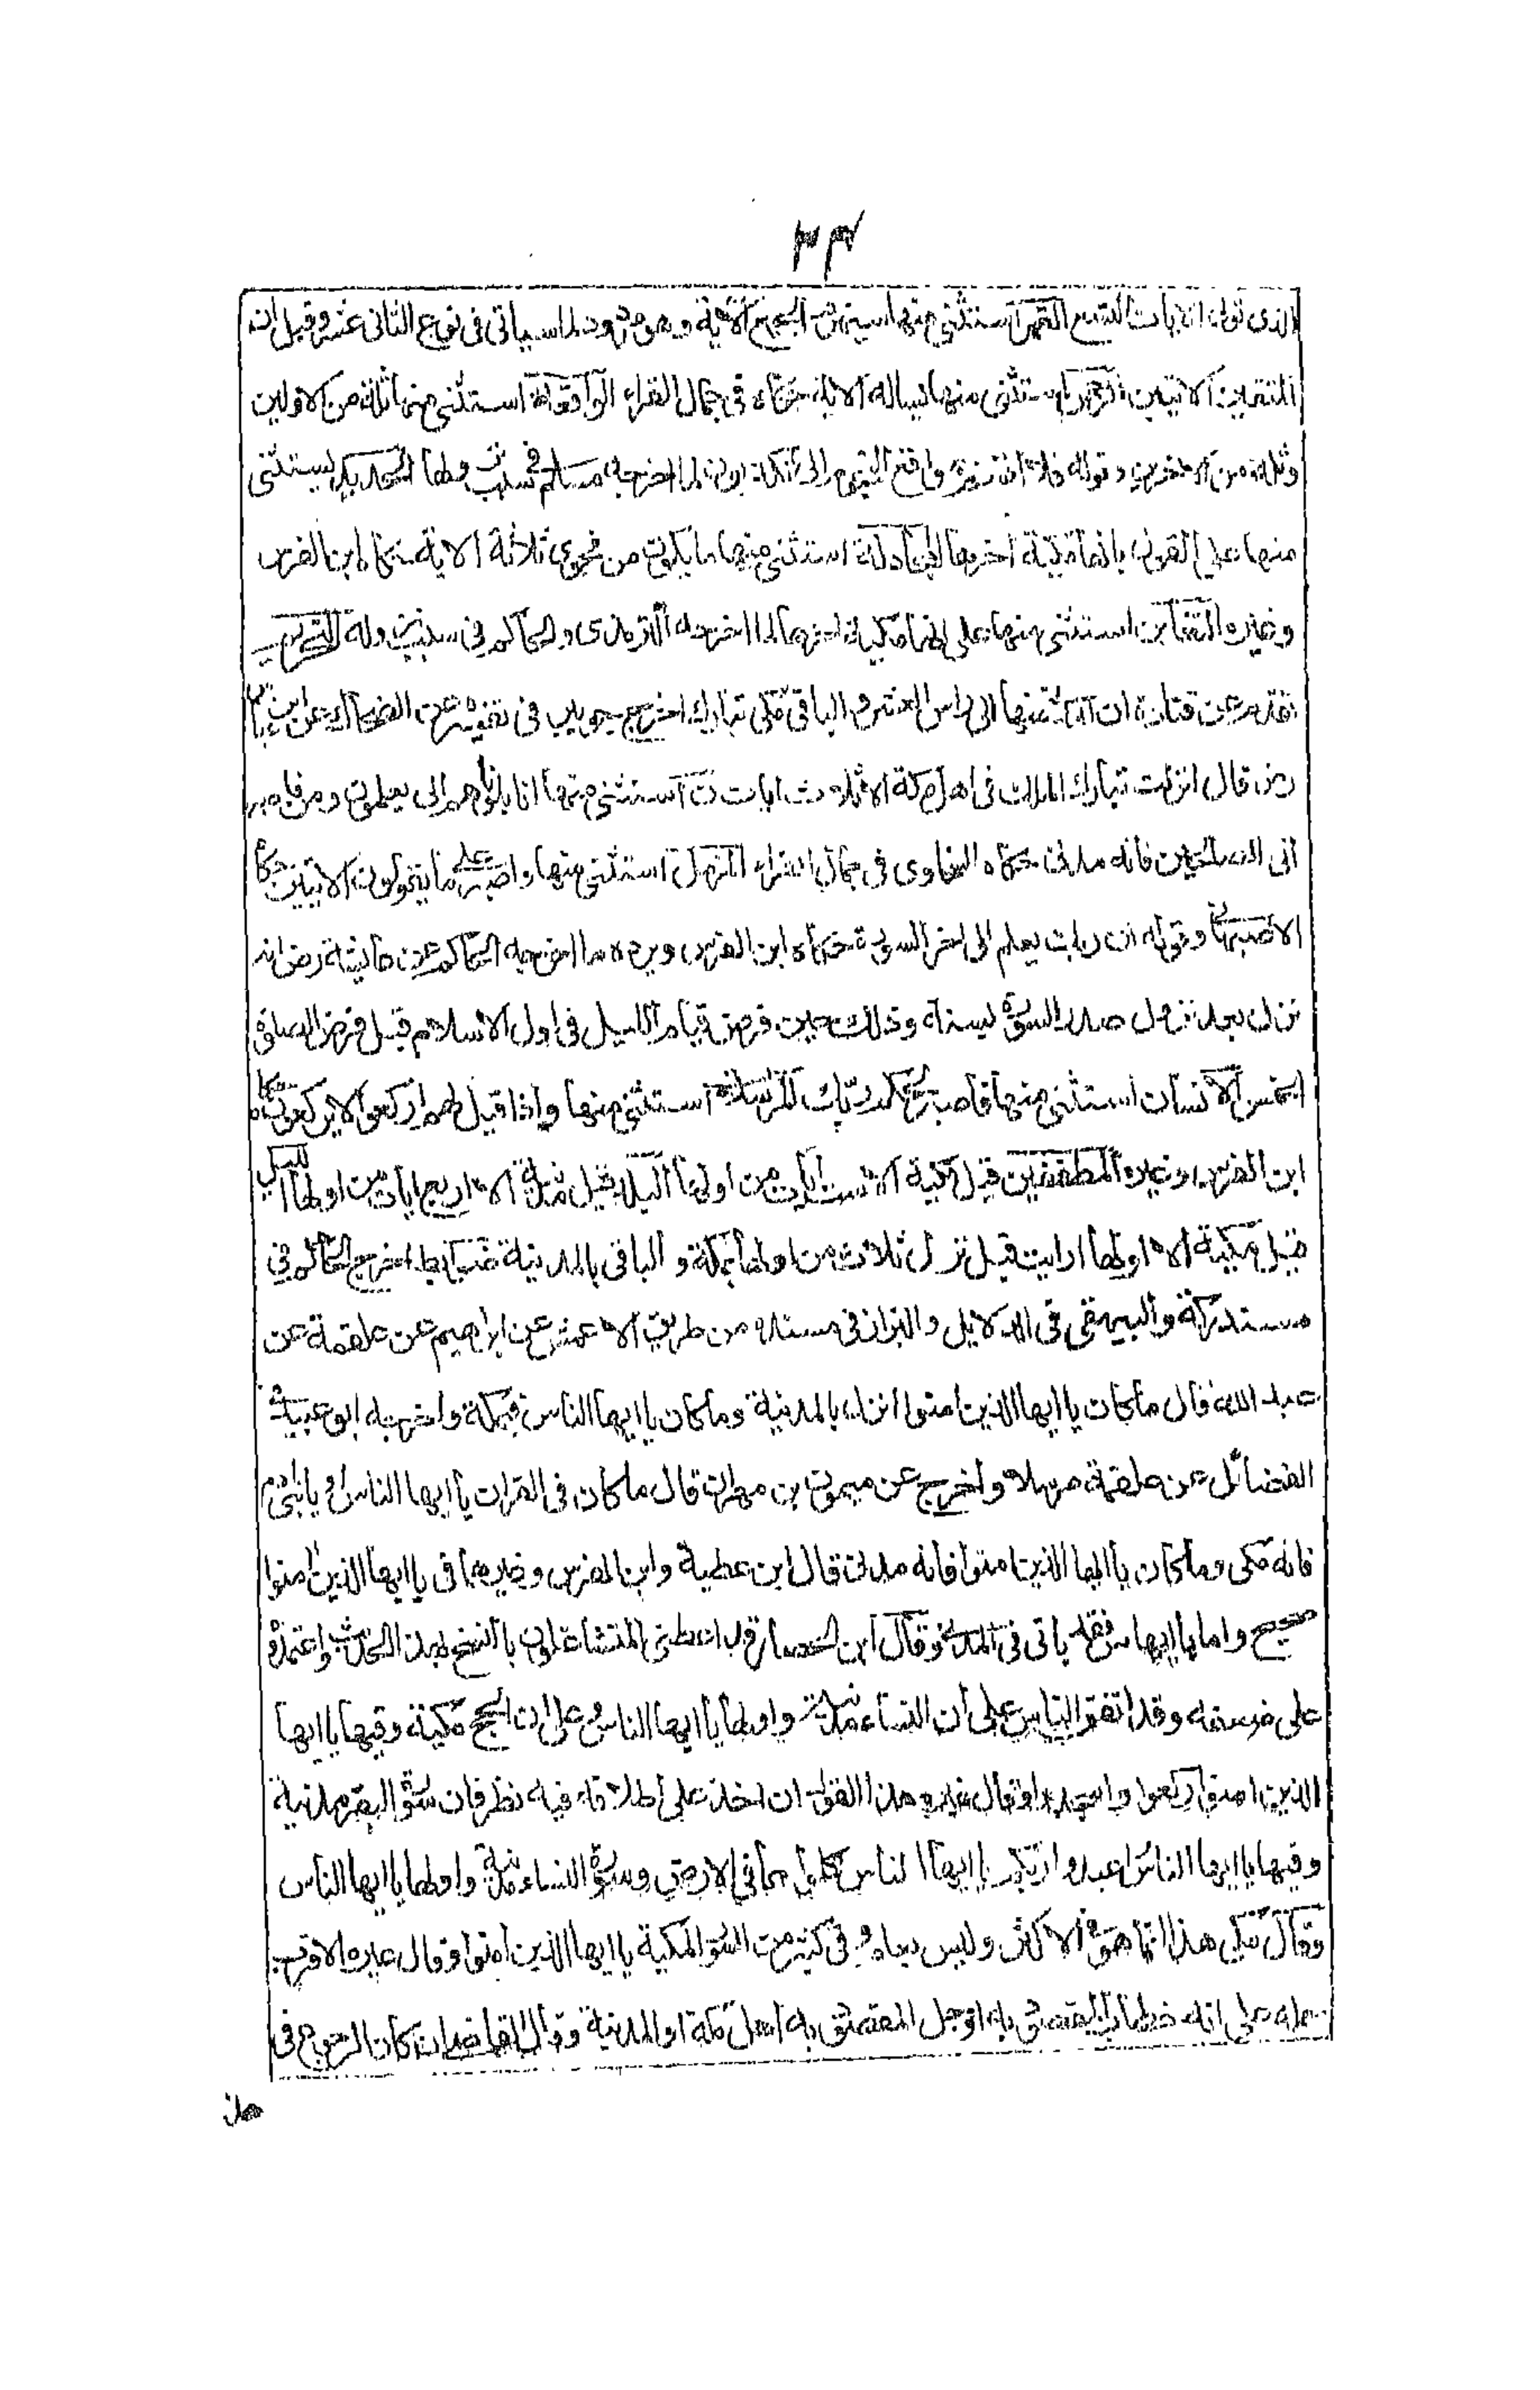 ٣٣
الذى تولى الايات التسع القمر استثنى منها سيهزم الجمع الآية وهو مردود لما سياتى فى نوع الثانى عشر وقيل ان
المتقين الآيتين الرحمن استثنى منها يساله الاية حكاه فى جمال القراء الواقعة استثنى منها ثلة من الاولين
وثلة من الاخرين وقوله فلا اقسم بمواقع النجوم الى تكذبون لما اخرجه مسلم فى سبب نزولها الحديد يستثنى
منها على القول بانها مكية اخرها المجادلة استثنى منها ما يكون من نجوى ثلاثة الاية حكاه ابن الفرس
وغيره التغابن استثنى منها على انها مكية اخرها لما اخرجه الترمذى والحاكم فى سبب نزوله التحريم
تقدم عن قتادة ان المدنى منها الى راس العشر والباقى مكى تبارك اخرج جويبر فى تفسيره عن الضحاك عن ابن عباس
رض قال انزلت تبارك الملك فى اهل مكة الا ثلاث ايات ن استثنى منها انا بلوناهم الى يعلمون ومن فاصبر
الى الصالحين فانه مدنى حكاه السخاوى فى جمال القراء المزمل استثنى منها واصبر على ما يقولون الآيتين حكاه
الاصبهانى وقوله ان ربك يعلم الى اخر السورة حكاه ابن الفرس ويرده ما اخرجه الحاكم عن عائشة رض انه
نزل بعد نزول صدر السورة بسنة وذلك حين فرض قيام الليل فى اول الاسلام قبل فرض الصلوة
الخمس الانسان استثنى منها فاصبر لحكم ربك المرسلات استثنى منها واذا قيل لهم اركعوا لا يركعون حكاه
ابن الفرس وغيره المطففين قيل مكية الا ست ايات من اولها البلد قيل مدنية الا اربع ايات من اولها الليل
قيل مكية الا اولها ارايت قيل نزل ثلاث من اولها بمكة والباقى بالمدينة ضابط اخرج الحاكم فى
مستدركه والبيهقى فى الدلايل والبزاز فى مسنده من طريق الاعمش عن ابراهيم عن علقمة عن
عبد الله قال ما كان يا ايها الذين امنوا انزل بالمدينة وما كان يا ايها الناس فبمكة واخرجه ابو عبيد فى
الفضائل عن علقمة مرسلا واخرج عن ميمون بن مهران قال ما كان فى القران يا ايها الناس او يا بنى ادم
فانه مكى وما كان يا ايها الذين امنوا فانه مدنى قال ابن عطية وابن الفرس وغيرهما فى يا ايها الذين امنوا
صحيح واما يا ايها الناس فقد ياتى فى المدنى وقال ابن الحصار قد اعتنى المتشاغلون بالنسخ بهذا الحديث واعتمدوه
على ضعفه وقد اتفق الناس على ان النساء مدنية واولها يا ايها الناس وعلى ان الحج مكية وفيها يا ايها
الذين امنوا اركعوا واسجدوا وقال غيره هذا القول ان اخذ على اطلاقه فيه نظر فان سورة البقر مدنية
وفيها يا ايها الناس اعبدوا ربكم يا ايها الناس كلوا مما فى الارض وسورة النساء مدنية واولها يا ايها الناس
وقال مكى هذا انما هو فى الاكثر وليس بعام وفى كثير من السور المكية يا ايها الذين امنوا وقال غيره الاقرب
حمله على انه خطاب المقصود به او جل المقصود به اهل مكة او المدينة وقال القاضى ان كان الرجوع فى
هذا